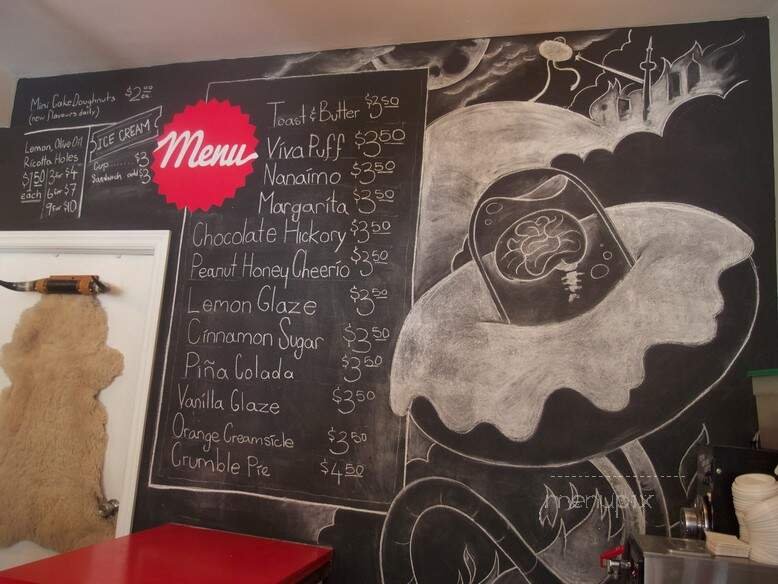 Mini Cake Doughnuts $2.00 ea.
(new flavours daily)
Lemon, Olive Oil
Ricotta Holes
$1.50 each
3 for $4
6 for $7
9 for $10
ICE CREAM
Cup ....... $3
Sandwich add $3
Menu
Toast & Butter $3.50
Viva Puff $3.50
Nanaimo $3.50
Margarita $3.50
Chocolate Hickory $3.50
Peanut Honey Cheerio $3.50
Lemon Glaze $3.50
Cinnamon Sugar $3.50
Piña Colada $3.50
Vanilla Glaze $3.50
Orange Creamsicle $3.50
Crumble Pie $4.50
menupix